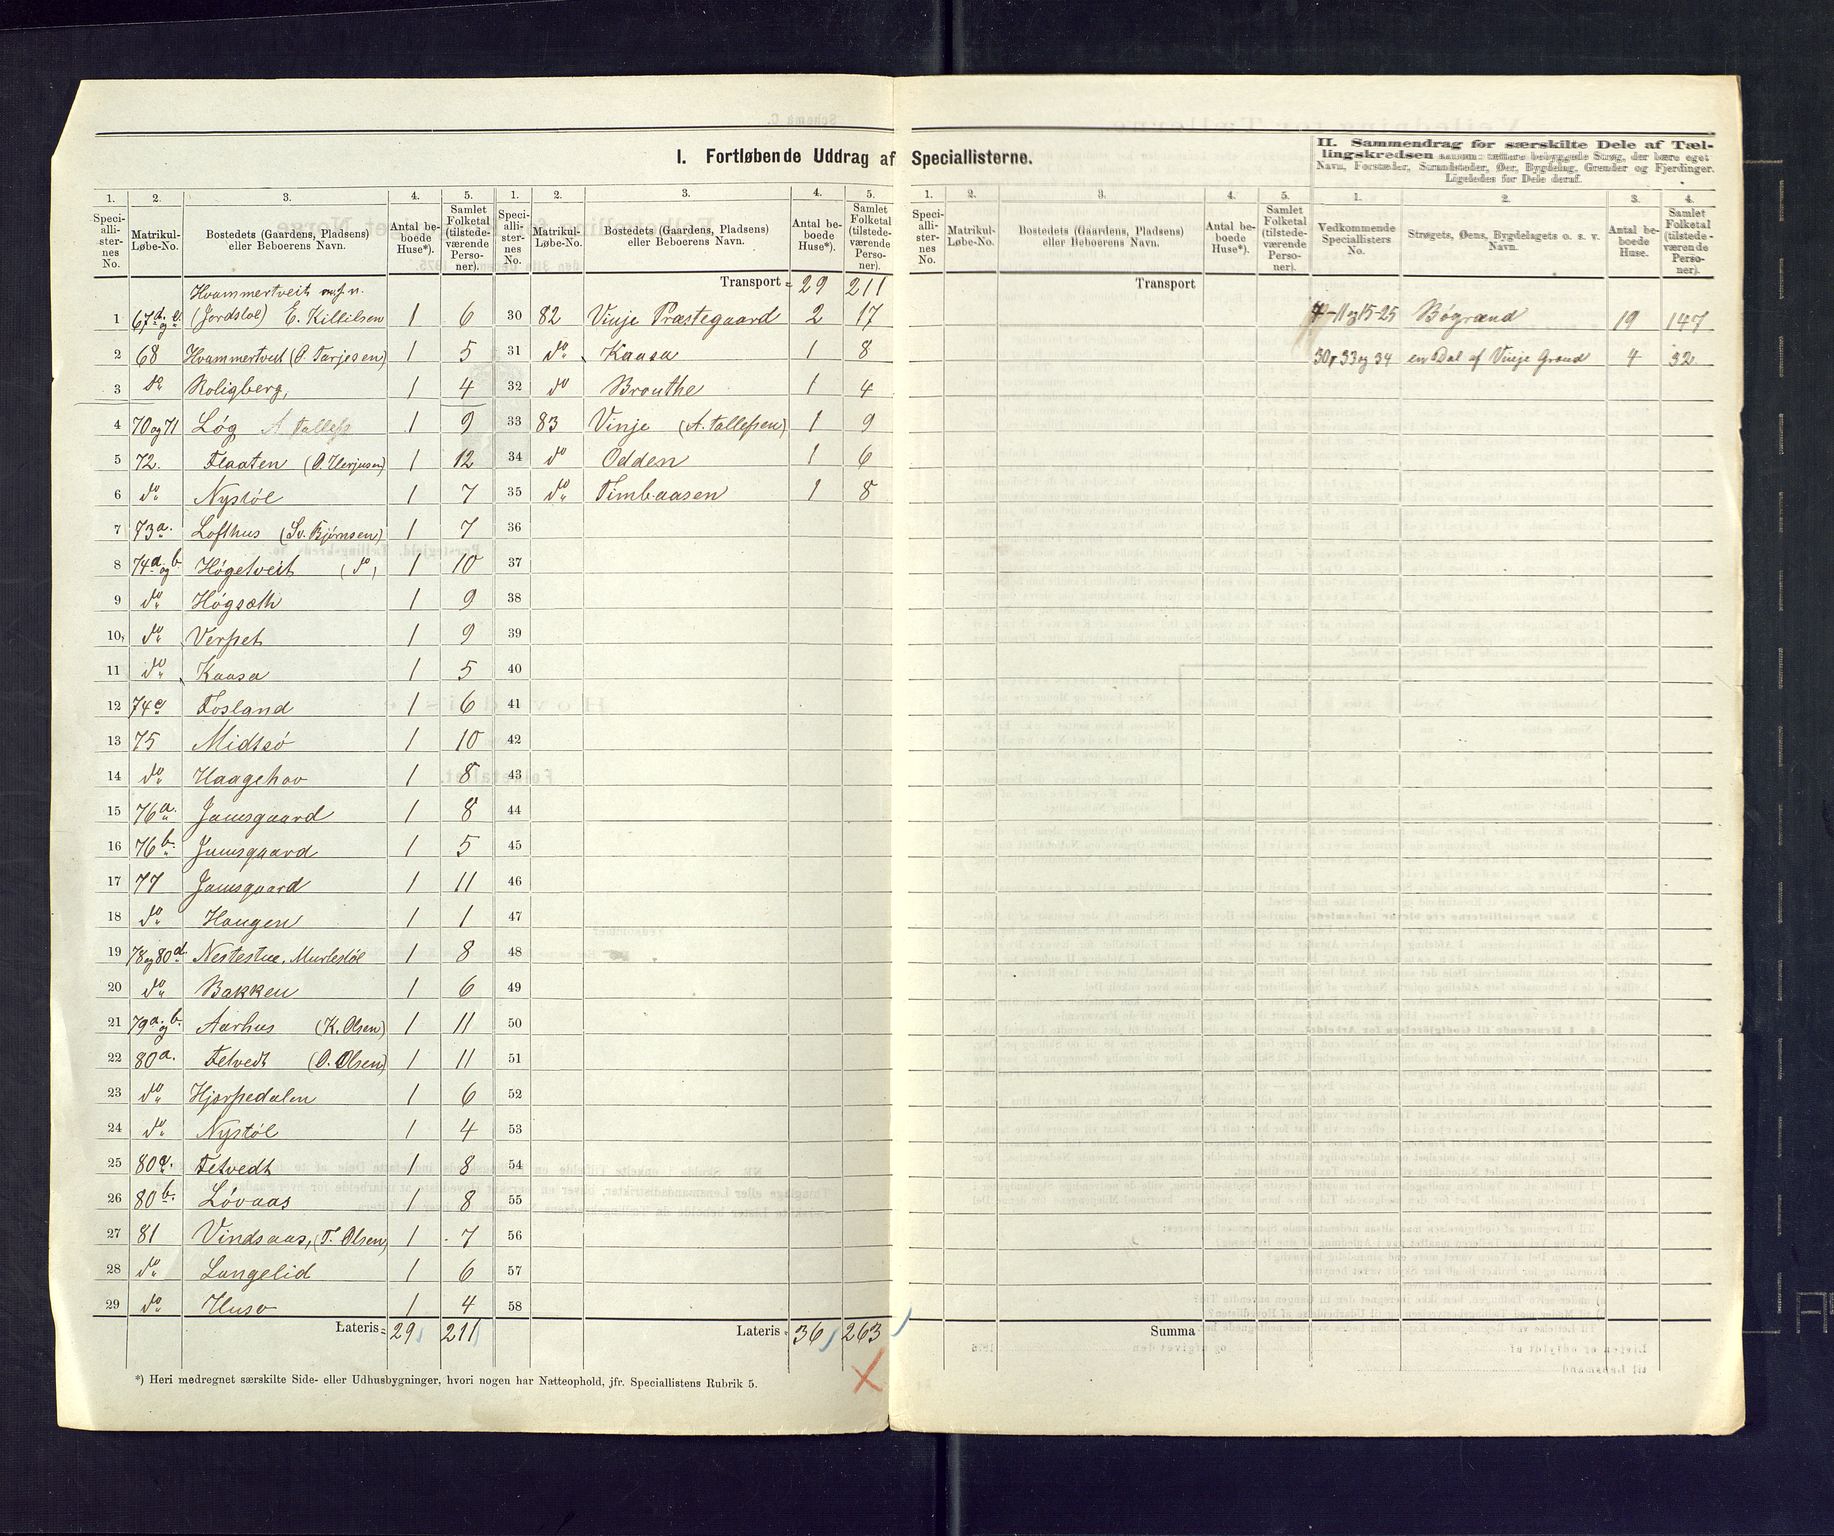 I. Fortløbende Uddrag af Speciallisterne.
II. Sammendrag for særskilte Dele af Tæl-
lingskredsen saasom: tættere bebyggede Strøg, der bære eget
Navn, Forstæder, Strandsteder, Øer, Bygdelag, Grender og Fjerdinger.
Ligeledes for Dele deraf.
1. 2. 3. 4. 5.
Speciallisternes No. Matrikul-Løbe-No. Bostedets (Gaardens, Pladsens) eller Beboerens Navn. Antal beboede Huse*). Samlet Folketal (tilstedeværende Personer).
Hvammertveit
1 67d og e (Jordstøl) E. Killilsen 1 6
2 68 Hvammertveit (O. Tarjesen) 1 5
3 do Roligberg, 1 4
4 70 og 71 Løg A Tallefs 1 9
5 72. Flaaten (O. Herjusen) 1 12
6 do Nystøl 1 7
7 73a. Lofthus (Sv. Bjørnsen) 1 7
8 74a og b Høgetveit (do) 1 10
9 do Høgsæth 1 9
10 do Verpet 1 9
11 do Kaasa 1 5
12 74c Fosland 1 6
13 75 Midtsø 1 10
14 do Haagehov 1 8
15 76a. Jamsgaard 1 8
16 76b. Jamsgaard 1 5
17 77 Jamsgaard 1 11
18 do Haugen 1 1
19 78 og 80d. Nestestue, Murlestøl 1 8
20 do Bakken 1 6
21 79a. og b. Aarhus (K. Olsen) 1 11
22 80a. Fetvedt (O. Olsen) 1 11
23 do Hjerpedalen 1 6
24 do Nystøl 1 4
25 80c. Fetvedt 1 8
26 80b. Løvaas 1 8
27 81 Vindsaas, (T. Olsen) 1 7
28 do Langelid 1 6
29 do Huso 1 4
Lateris = 29 211
*) Heri medregnet særskilte Side- eller Udhusbygninger, hvori nogen har Natteophold, jfr. Speciallistens Rubrik 5.
1. 2. 3. 4. 5.
Speciallisternes No. Matrikul-Løbe-No. Bostedets (Gaardens, Pladsens) eller Beboerens Navn. Antal beboede Huse*). Samlet Folketal (tilstedeværende Personer).
Transport = 29 211
30 82 Vinje Præstegaard 2 17
31 do Kaasa 1 8
32 do Brouthe 1 4
33 83 Vinje (A. Tallefsen) 1 9
34 do Odden 1 6
35 do Timbaasen 1 8
36
37
38
39
40
41
42
43
44
45
46
47
48
49
50
51
52
53
54
55
56
57
58
Lateris = 36 263
1. 2. 3. 4. 5.
Speciallisternes No. Matrikul-Løbe-No. Bostedets (Gaardens, Pladsens) eller Beboerens Navn. Antal beboede Huse*). Samlet Folketal (tilstedeværende Personer).
Transport
Summa
1. 2. 3. 4.
Vedkommende Speciallisters No. Strøgets, Øens, Bygdelagets o. s. v. Navn. Antal beboede Huse. Samlet Folketal (tilstedeværende Personer).
4-11 og 15-25 Bøgrænd 19 147
30, 33 og 34 en Del af Vinje Grænd 4 32